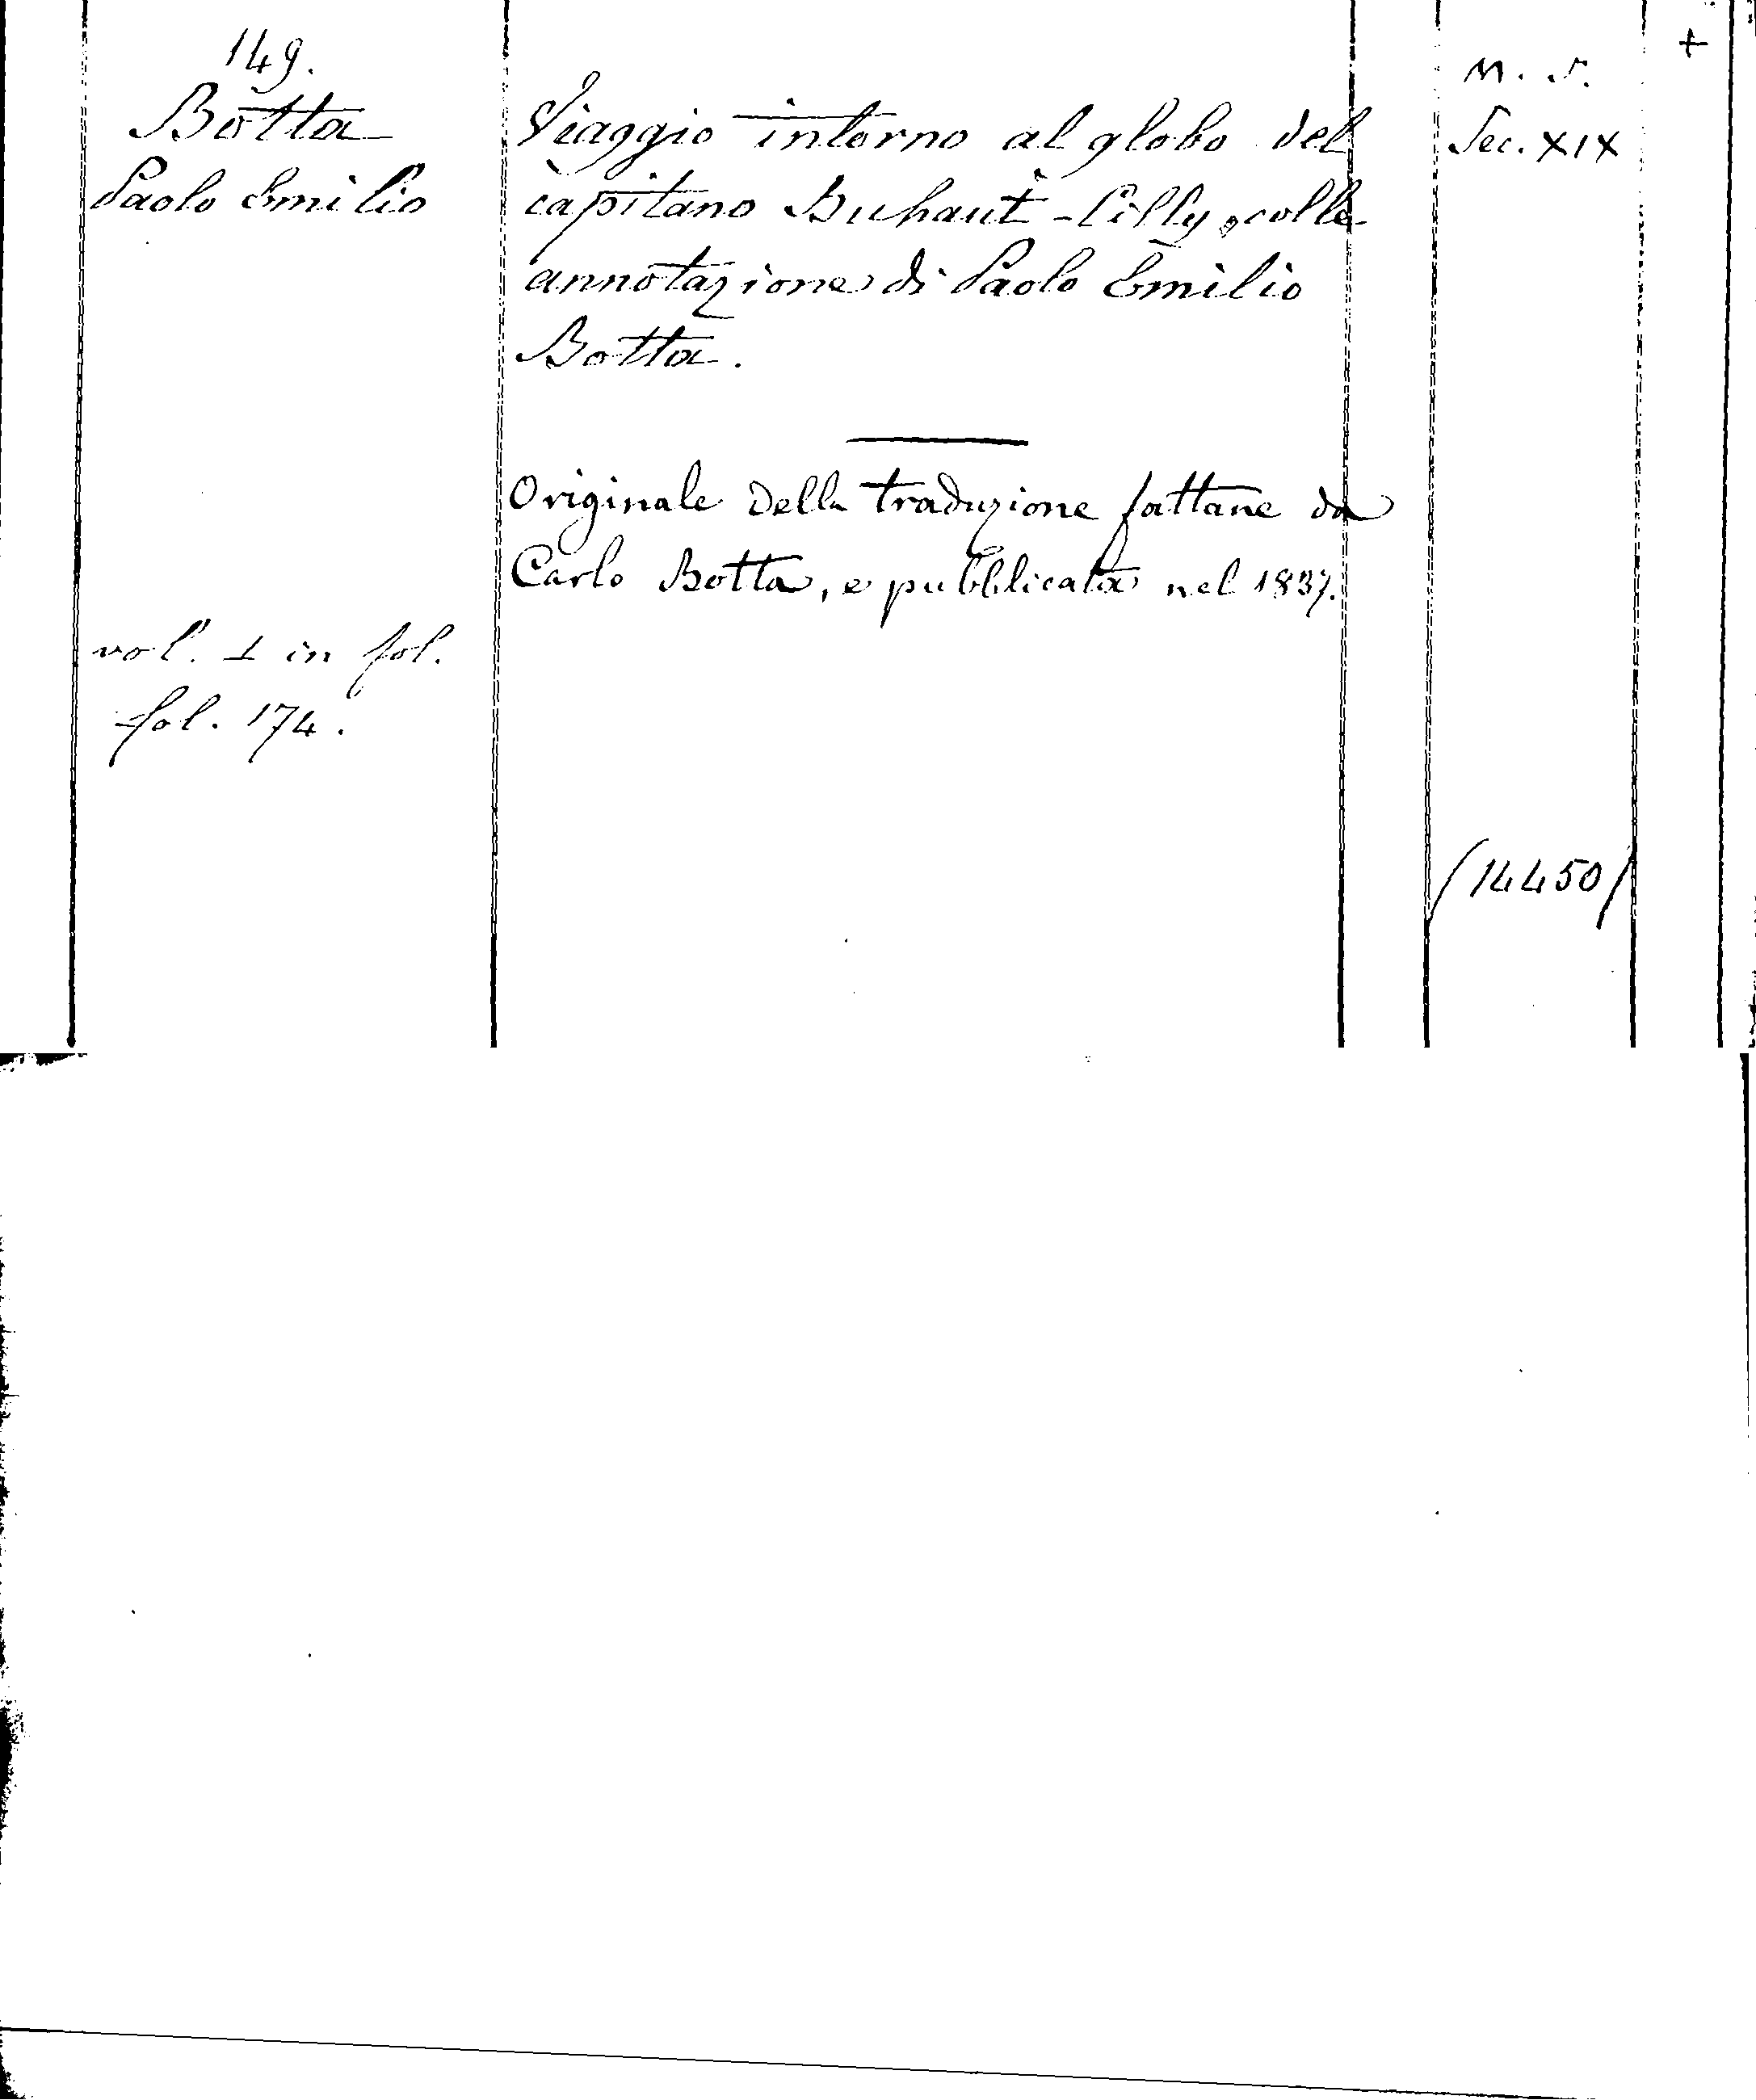 149.
Botta
Paolo Emilio
Viaggio intorno al globo del
capitano Buhaut-Cilly, colle
annotazione di Paolo Emilio
Botta.
Originale della traduzione fattane da
Carlo Botta, e pubblicata nel 1837.
vol. 1 in fol.
fol. 174.
M. S.
Sec. XIX
+
(14450)